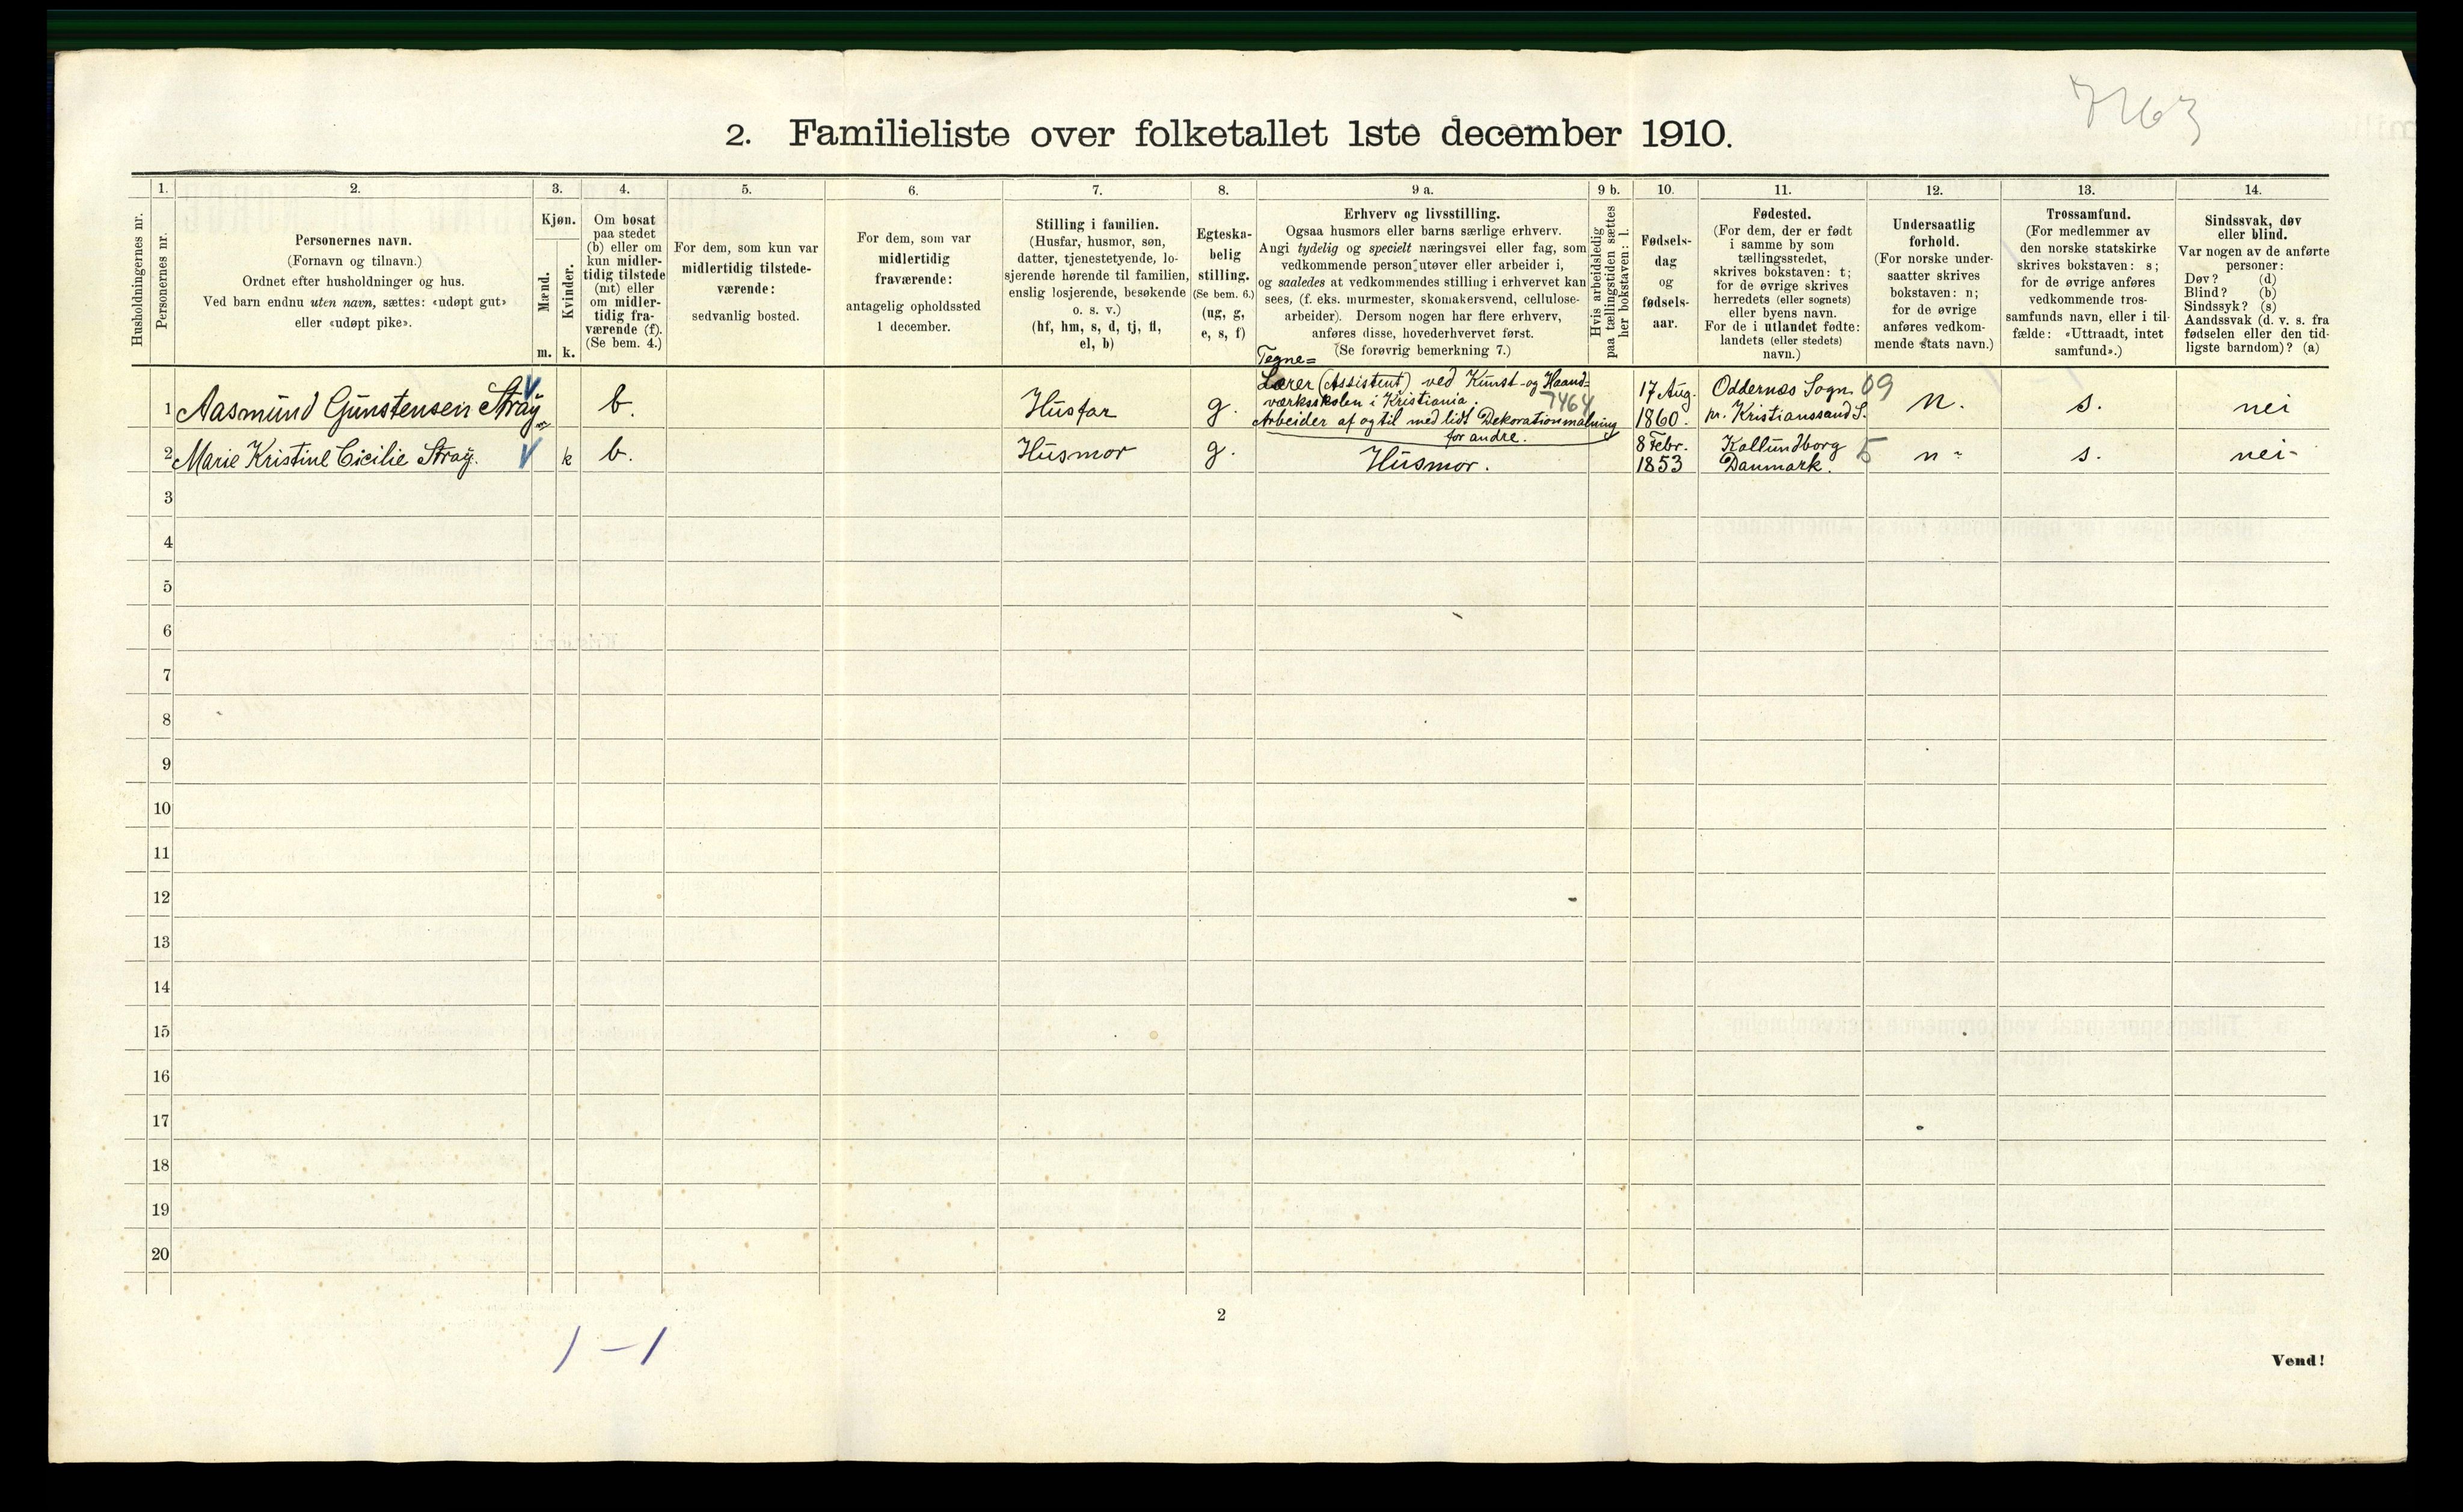 7163
2. Familieliste over folketallet 1ste december 1910.
Husholdningernes nr.
1.
Personernes nr.
2.
Personernes navn.
(Fornavn og tilnavn.)
Ordnet efter husholdninger og hus.
Ved barn endnu uten navn, sættes: «udøpt gut»
eller «udøpt pike».
3.
Kjøn.
Mænd.
Kvinder.
m. k.
4.
Om bosat
paa stedet
(b) eller om
kun midler-
tidig tilstede
(mt) eller
om midler-
tidig fra-
værende (f).
(Se bem. 4.)
5.
For dem, som kun var
midlertidig tilstede-
værende:
sedvanlig bosted.
6.
For dem, som var
midlertidig
fraværende:
antagelig opholdssted
1 december.
7.
Stilling i familien.
(Husfar, husmor, søn,
datter, tjenestetyende, lo-
sjerende hørende til familien,
enslig losjerende, besøkende
o. s. v.)
(hf, hm, s, d, tj, fl,
el, b)
8.
Egteska-
belig
stilling.
(Se bem. 6.)
(ug, g,
e, s, f)
9 a.
Erhverv og livsstilling.
Ogsaa husmors eller barns særlige erhverv.
Angi tydelig og specielt næringsvei eller fag, som
vedkommende person utøver eller arbeider i,
og saaledes at vedkommendes stilling i erhvervet kan
sees, (f. eks. murmester, skomakersvend, cellulose-
arbeider). Dersom nogen har flere erhverv,
anføres disse, hovederhvervet først.
(Se forøvrig bemerkning 7.)
9 b.
Hvis arbeidsledig
paa tællingstiden sættes
her bokstaven: l.
10.
Fødsels-
dag
og
fødsels-
aar.
11.
Fødested.
(For dem, der er født
i samme by som
tællingsstedet,
skrives bokstaven: t;
for de øvrige skrives
herredets (eller sognets)
eller byens navn.
For de i utlandet fødte:
landets (eller stedets)
navn.)
12.
Undersaatlig
forhold.
(For norske under-
saatter skrives
bokstaven: n;
for de øvrige
anføres vedkom-
mende stats navn.)
13.
Trossamfund.
(For medlemmer av
den norske statskirke
skrives bokstaven: s;
for de øvrige anføres
vedkommende tros-
samfunds navn, eller i til-
fælde: «Uttraadt, intet
samfund».)
14.
Sindssvak, døv
eller blind.
Var nogen av de anførte
personer:
Døv? (d)
Blind? (b)
Sindssyk? (s)
Aandssvak (d. v. s. fra
fødselen eller den tid-
ligste barndom)? (a)
1 Aasmund Gunstensen Stray m b. Husfar g. Tegne=
Lærer (Assistent) ved Kunst- og Haand=
værksskolen i Kristiania. 7464
Arbeider af og til med lidt Dekorationmalning
for andre.
17 Aug. 1860. Oddernæs Sogn 09
pr. Kristianssand S. n. s. nei
2 Marie Kristine Cicilie Stray. k b. Husmor g. Husmor. 8 Febr. 1853 Kallundborg 5
Danmark. n- s. nei-
3
4
5
6
7
8
9
10
11
12
13
14
15
16
17
18
19
20
2
1-1
Vend!